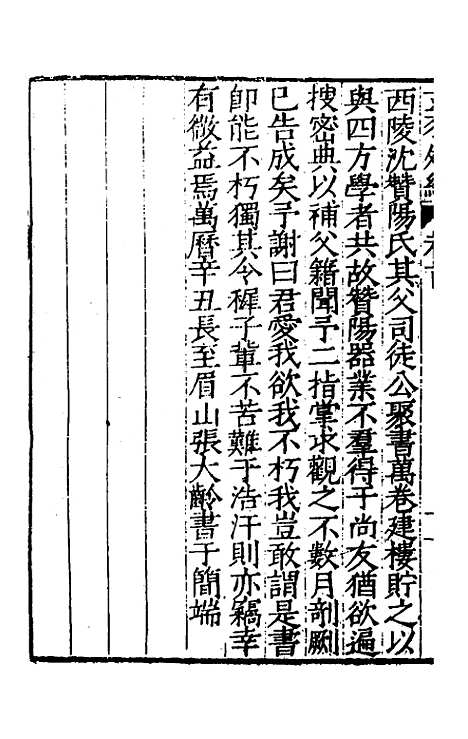 西陵沈贊陽氏其父司徒公聚書萬卷建樓貯之以
與四方學者共故贊陽器業不羣得于尚友猶欲遍
搜密典以補父籍聞予二指掌求觀之不數月剞劂
已告成矣予謝曰君愛我欲我不朽我豈敢謂是書
卽能不朽獨其令稺子輩不苦難于浩汗則亦竊幸
有微益焉萬曆辛丑長至眉山張大齡書于簡端